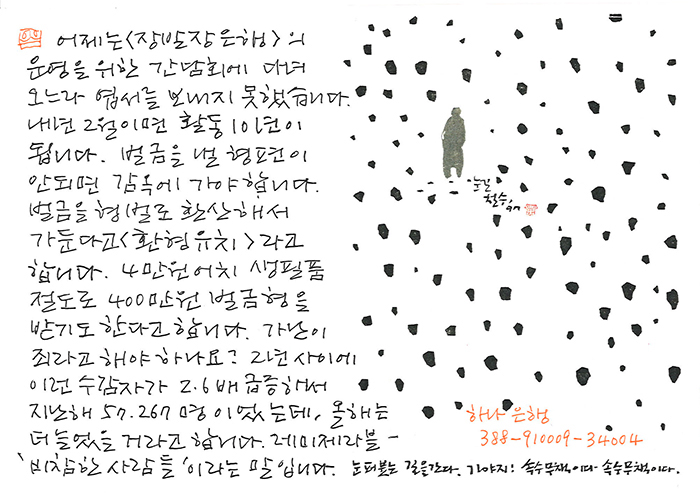 어제는 <장발장은행>의
운영을 위한 간담회에 다녀
오느라 엽서를 보내지 못했습니다.
내년 2월이면 활동 10년이
됩니다. 벌금을 낼 형편이
안되면 감옥에 가야합니다.
벌금을 형벌로 환산해서
가둔다고 <환형유치>라고
합니다. 4만원어치 생필품
절도로 400만원 벌금형을
받기도 한다고 합니다. 가난이
죄라고 해야 하나요? 2년 사이에
이런 수감자가 2.6배 급증해서
지난해 57.267명이었는데, 올해는
더 늘었을 거라고 합니다. 레미제라블 -
'비참한 사람들'이라는 말입니다.
눈길
철수 97
하나은행
388-910009-34004
눈퍼붓는 길을간다. 가야지! 속수무책이다 속수무책이다.